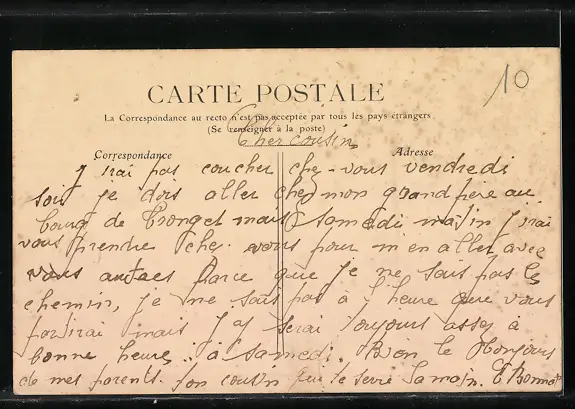 10
CARTE POSTALE
La Correspondance au recto n'est pas acceptée par tous les pays étrangers
(Se renseigner à la poste)
Cher cousin
Correspondance
Adresse
J irai pas coucher chez-vous vendredi
soir je dois aller chez mon grand père au
bourg de Tronget mais samedi matin J irai
vous prendre chez vous pour m en aller avec
vous autaes Parce que je ne sais pas le
chemin, je ne sais pas à l heure que vous
partirai mais J y serai toujours assez à
bonne heure.. à samedi. Bien le Bonjours
de mes parents. ton cousin qui te serre la main. E Bonnet